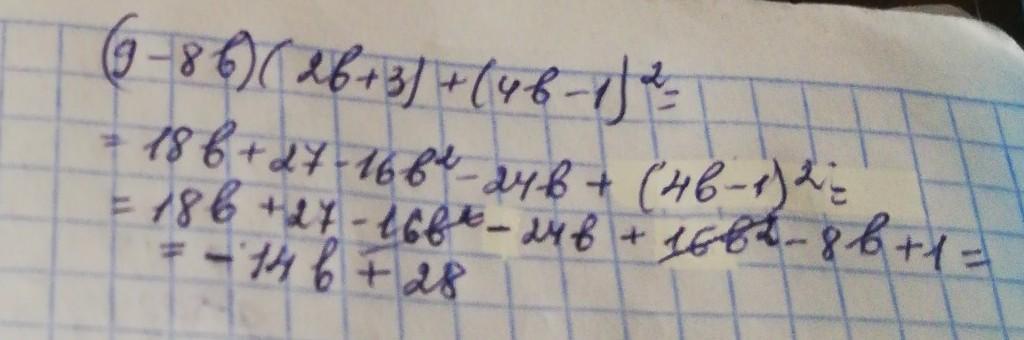 (9-8b)(2b+3)+(4b-1)²=
= 18b+27-16b²-24b+ (4b-1)²=
= 18b+27-16b²-24b+16b²-8b+1=
= -14b+28